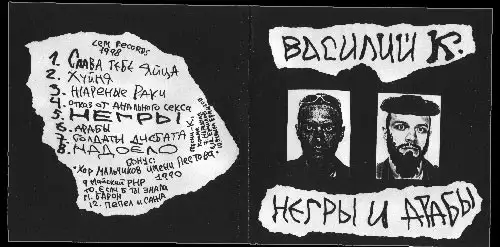 LEM RECORDS
1998
1. СЛАВА ТЕБЕ ЯЙЦА
2. ХУЙНЯ
3. ЖАРЕНЫЕ РАКИ
4. ОТКАЗ ОТ АНАЛЬНОГО СЕКСА
5. НЕГРЫ
6. АРАБЫ
7. СОЛДАТЫ ДИСБАТА
8. НАДОЕЛО
БОНУС:
"ХОР МАЛЬЧИКОВ ИМЕНИ ПЕСТОВА"
1990
9 МАЙСКИЙ
ЕСЛИ Б ТЫ ЗНАЛА
БАРОН
12. ПЕПЕЛ И САЖА
ВАСИЛИЙ К.
НЕГРЫ И АРАБЫ